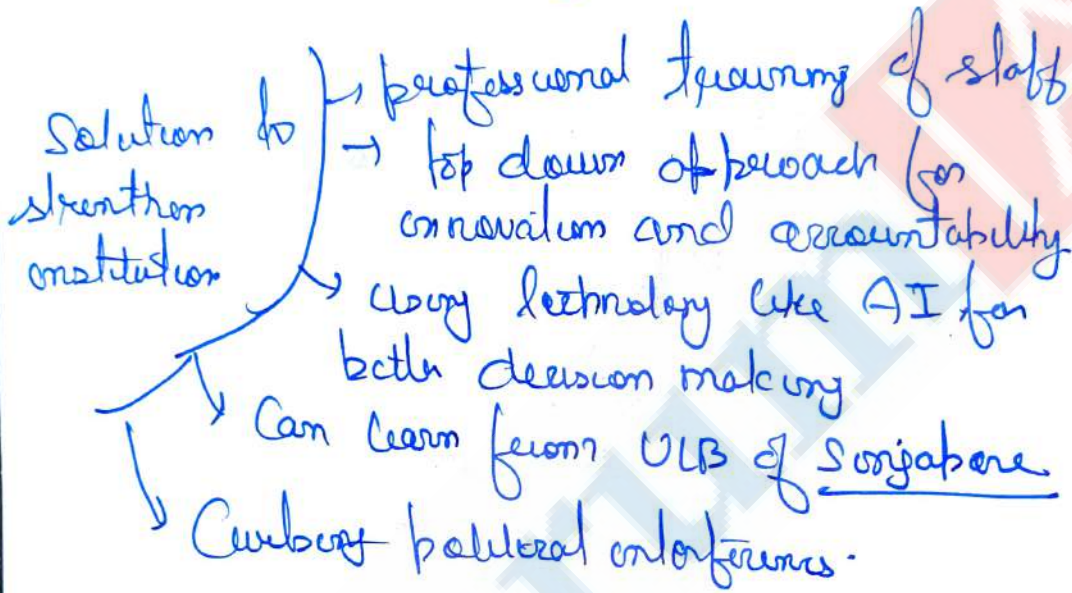 Solution to
strenthen
institution
→ professional training of staff
→ top down approach for
innovation and accountability
→ using technology like AI for
better decision making
→ Can learn from ULB of Singapore
→ Curbing political interference.